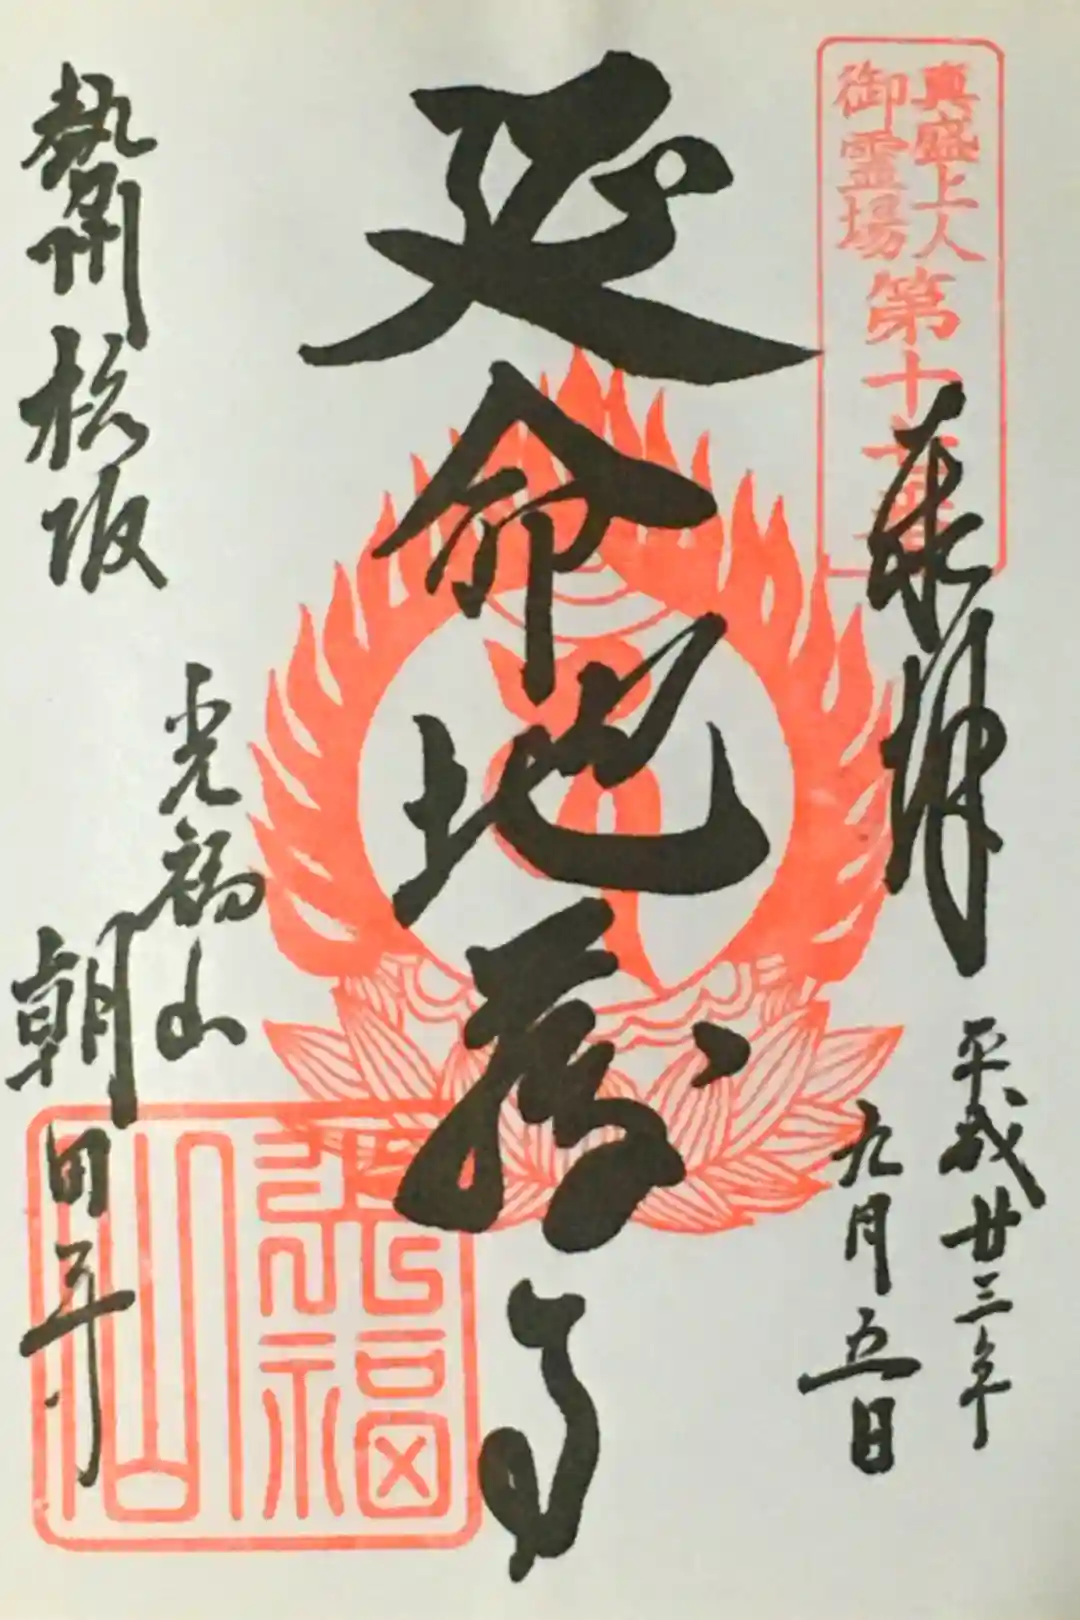 真盛上人
御霊場
第十七番
奉拝
平成廿三年
九月五日
延命地蔵尊
光福山
勢州松阪
光福山
朝田寺